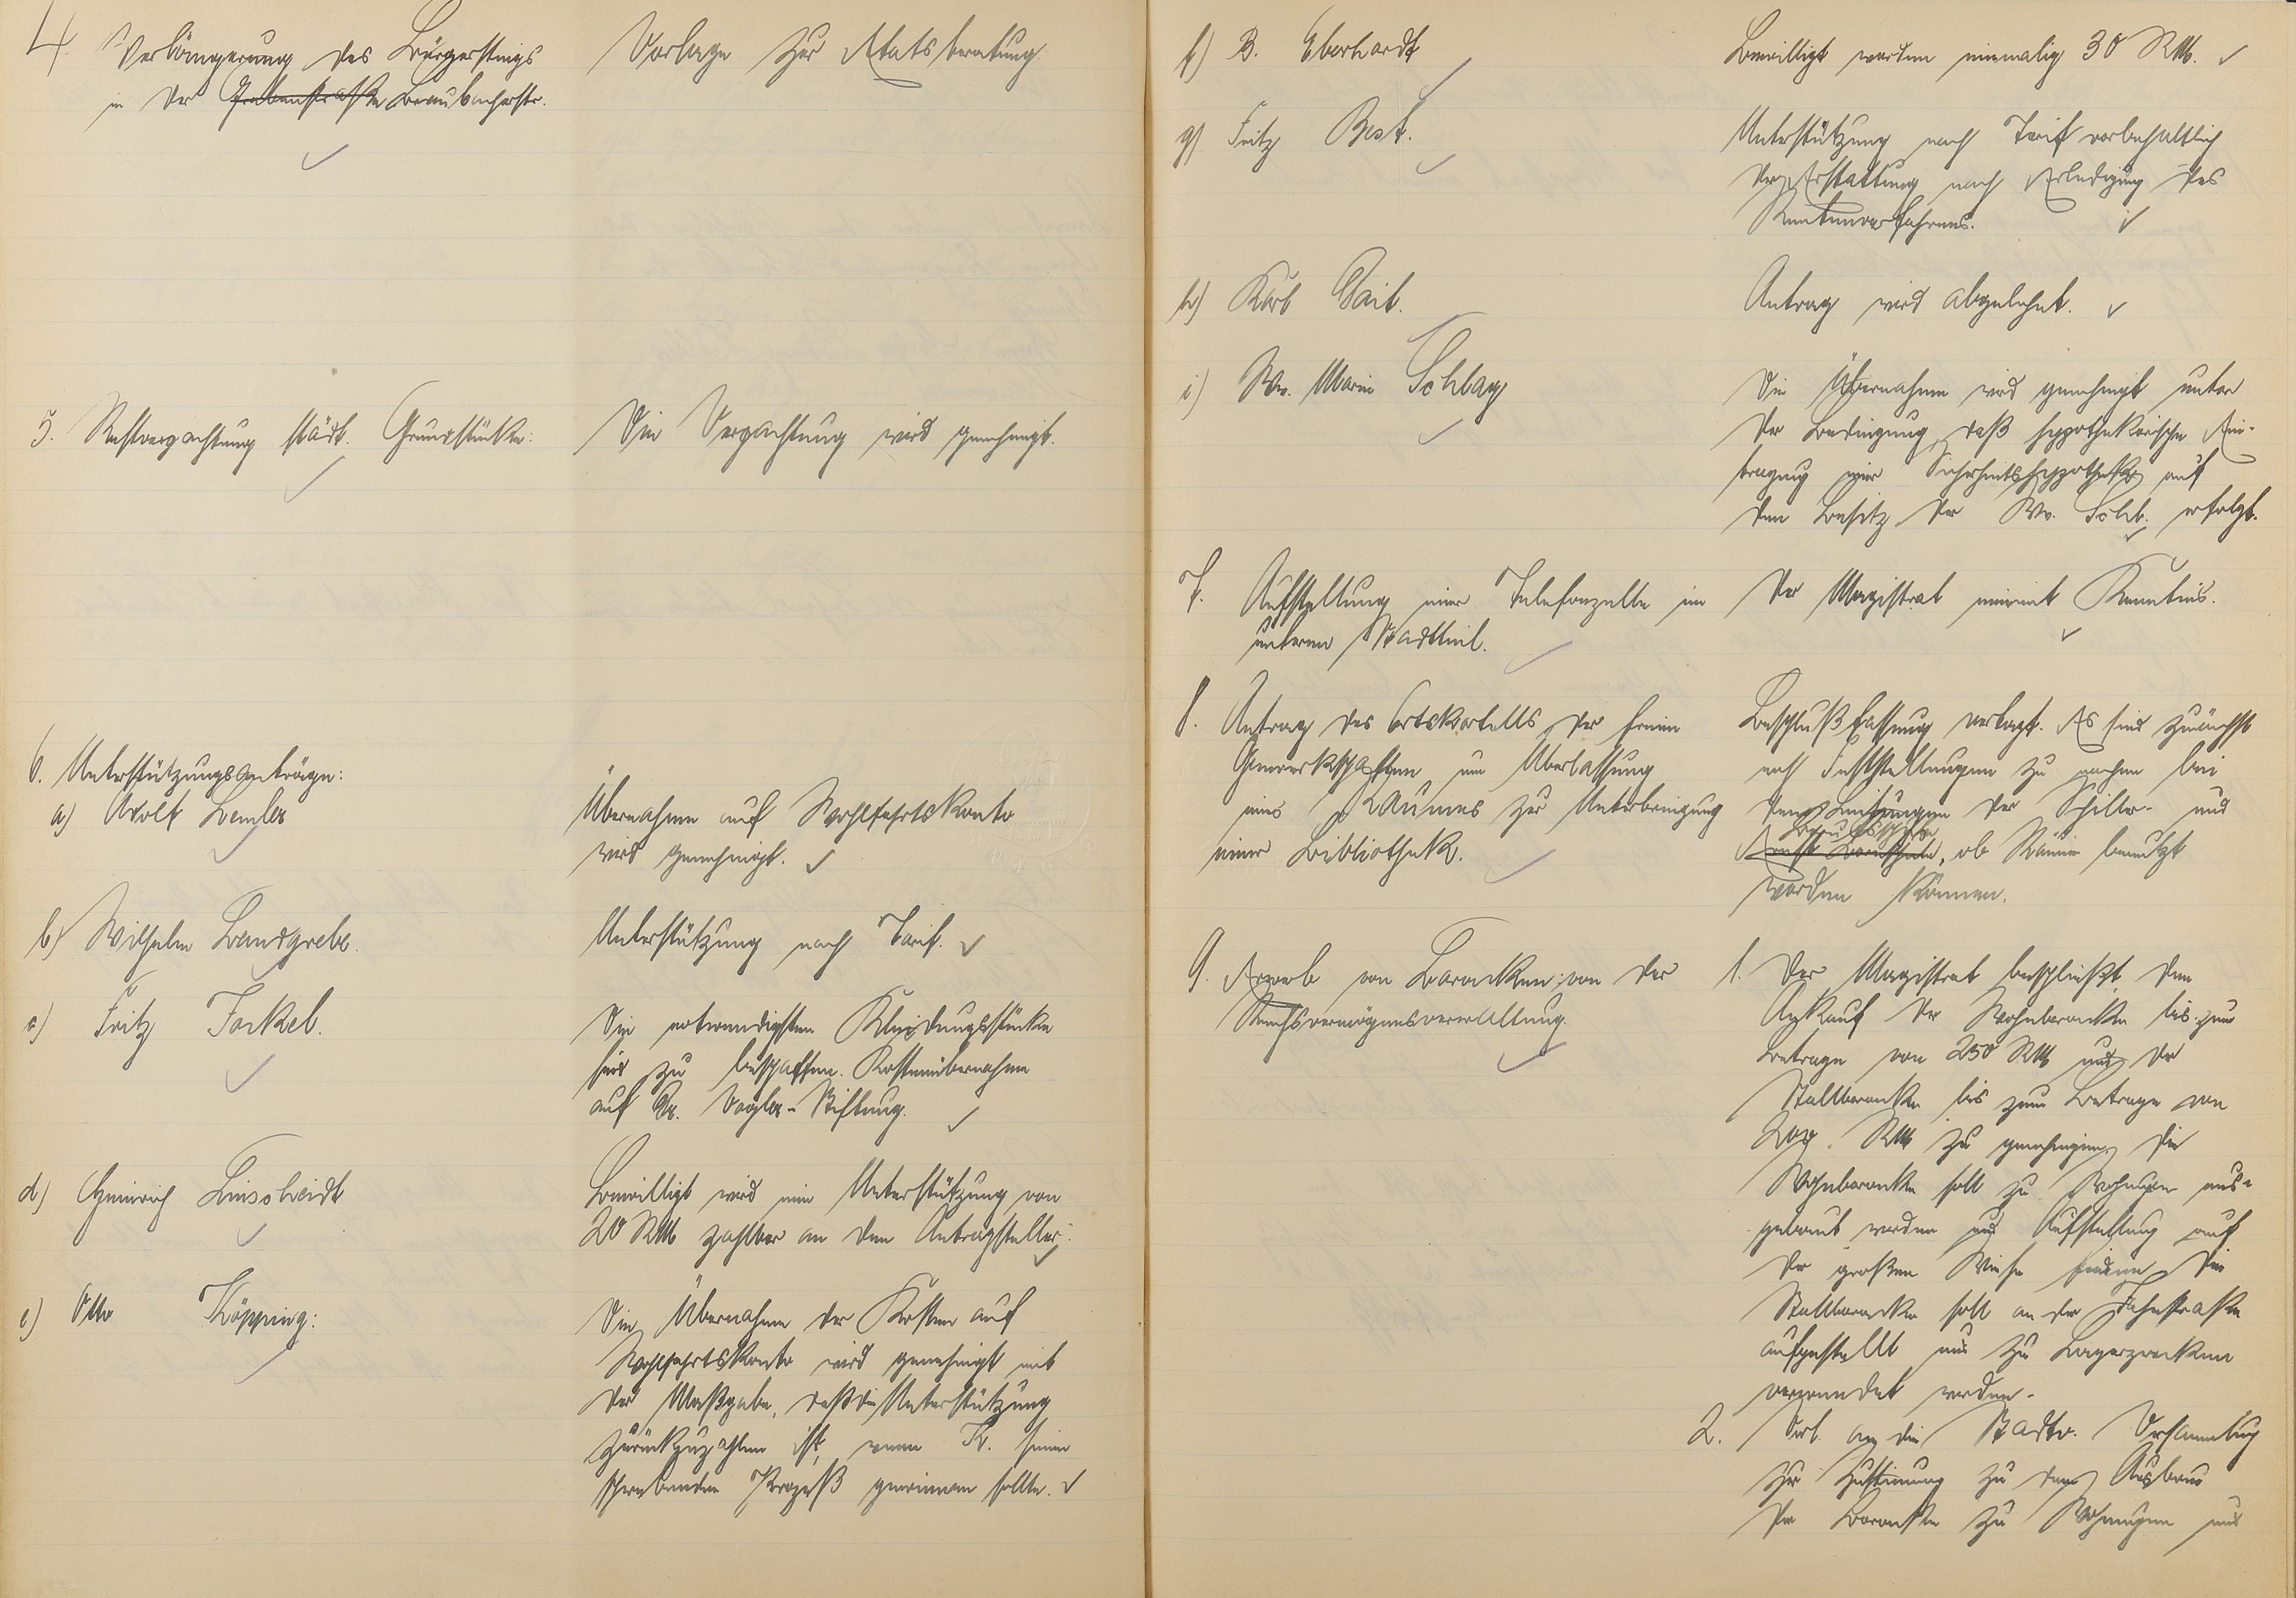 4. Verlängerung des Bürgersteigs
in der Grabenstraße Braubacherstr.
Vorlage zur Etatsberatung.
5. Restverpachtung städt. Grundstücke:
Die Verpachtung wird genehmigt.
6. Unterstützungsanträge:
a) Adolf Lemler
Übernahme auf Wohlfahrtskonto
wird genehmigt.
b) Wilhelm Landgrebe.
Unterstützung nach Tarif.
c) Fritz Forkel.
Die notwendigsten Kleidungsstücke
sind zu beschaffen. Kostenübernahme
auf Dr. Vogler-Stiftung.
d) Heinrich Linscheidt
Bewilligt wird eine Unterstützung von
20 RM zahlbar an den Antragsteller.
e) Otto Köpping:
Die Übernahme der Kosten auf
Wohlfahrtskonto wird genehmigt mit
der Maßgabe, daß die Unterstützung
zurückzuzahlen ist, wenn K. seinen
schwebenden Prozeß gewinnen sollte.
f) B. Eberhardt
Bewilligt werden einmalig 30 RM.
g) Fritz Best.
Unterstützung nach Tarif vorbehaltlich
der Erstattung nach Erledigung des
Rentenverfahrens.
h) Karl
Antrag wird abgelehnt.
i) Ww. Marie Schlag
Die Übernahme wird genehmigt unter
der Bedingung, daß hypothekarische Ein-
tragung einer Sicherheitshypothek auf
den Besitz der Ww. Schl. erfolgt.
7. Aufstellung einer Telefonzelle im
unteren Stadtteil.
Der Magistrat nimmt Kenntnis.
8. Antrag des Ortskartells der freien
Gewerkschaften um Überlassung
eines Raumes zur Unterbringung
einer Bibliothek.
Beschlußfassung vertagt. Es sind zunächst
noch Feststellungen zu machen bei
den Leitungen der Schiller- und
Berufsschule, ob Räume benutzt
werden können.
9. Erwerb von Baracken von der
Reichsvermögensverwaltung.
1. Der Magistrat beschließt, den
Ankauf der Wohnbaracke bis zum
Betrage von 250 RM und der
Stallbaracke bis zum Betrage von
200. RM zu genehmigen. Die
Wohnbaracke soll zu Wohnungen aus-
gebaut werden und Aufstellung auf
der großen Wiese finden. Die
Stallbaracke soll an der Jahnstraße
aufgestellt und zu Lagerzwecken
verwendet werden.
2. Vorl. an die Stadtv. Versammlung
zur Zustimmung zu dem Ausbau
der Baracke zu Wohnungen und